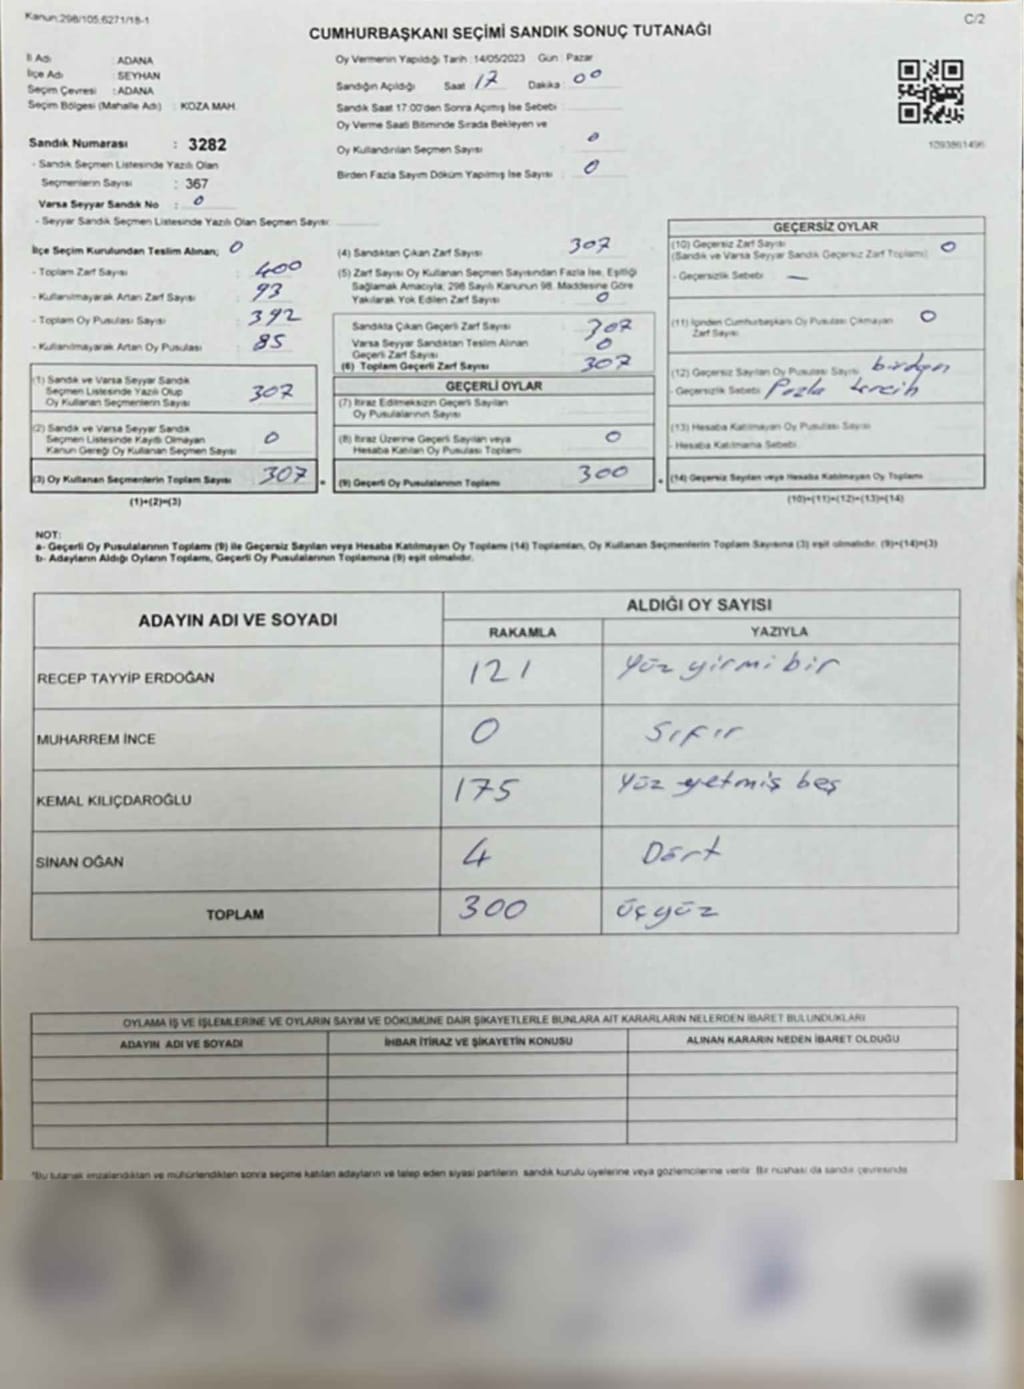 Kanun:298/105,6271/18-1
C/2
CUMHURBAŞKANI SEÇİMİ SANDIK SONUÇ TUTANAĞI
İl Adı : ADANA
İlçe Adı : SEYHAN
Seçim Çevresi : ADANA
Seçim Bölgesi (Mahalle Adı) : KOZA MAH.
Sandık Numarası : 3282
- Sandık Seçmen Listesinde Yazılı Olan
Seçmenlerin Sayısı : 367
Varsa Seyyar Sandık No : 0
- Seyyar Sandık Seçmen Listesinde Yazılı Olan Seçmen Sayısı:
Oy Vermenin Yapıldığı Tarih : 14/05/2023 Gün : Pazar
Sandığın Açıldığı Saat : 17 Dakika : 00
Sandık Saat 17:00'den Sonra Açımış İse Sebebi :
Oy Verme Saati Bitiminde Sırada Bekleyen ve
Oy Kullandırılan Seçmen Sayısı : 0
Birden Fazla Sayım Döküm Yapılmış İse Sayısı : 0
1293861496
İlçe Seçim Kurulundan Teslim Alınan; 0
- Toplam Zarf Sayısı : 400
- Kullanılmayarak Artan Zarf Sayısı : 93
- Toplam Oy Pusulası Sayısı : 392
- Kullanılmayarak Artan Oy Pusulası : 85
(1) Sandık ve Varsa Seyyar Sandık
Seçmen Listesinde Yazılı Olup
Oy Kullanan Seçmenlerin Sayısı 307
(2) Sandık ve Varsa Seyyar Sandık
Seçmen Listesinde Kayıtlı Olmayan
Kanun Gereği Oy Kullanan Seçmen Sayısı 0
(3) Oy Kullanan Seçmenlerin Toplam Sayısı 307
(1)+(2)=(3)
(4) Sandıktan Çıkan Zarf Sayısı 307
(5) Zarf Sayısı Oy Kullanan Seçmen Sayısından Fazla İse, Eşitliği
Sağlamak Amacıyla; 298 Sayılı Kanunun 98. Maddesine Göre
Yakılarak Yok Edilen Zarf Sayısı 0
Sandıkta Çıkan Geçerli Zarf Sayısı 307
Varsa Seyyar Sandıktan Teslim Alınan
Geçerli Zarf Sayısı 0
(6) Toplam Geçerli Zarf Sayısı 307
GEÇERLİ OYLAR
(7) İtiraz Edilmeksizin Geçerli Sayılan
Oy Pusulalarının Sayısı
(8) İtiraz Üzerine Geçerli Sayılan veya
Hesaba Katılan Oy Pusulası Toplamı 0
(9) Geçerli Oy Pusulalarının Toplamı 300
GEÇERSİZ OYLAR
(10) Geçersiz Zarf Sayısı
(Sandık ve Varsa Seyyar Sandık Geçersiz Zarf Toplamı) 0
- Geçersizlik Sebebi : —
(11) İçinden Cumhurbaşkanı Oy Pusulası Çıkmayan 0
Zarf Sayısı
(12) Geçersiz Sayılan Oy Pusulası Sayısı birden
- Geçersizlik Sebebi Fazla tercih
(13) Hesaba Katılmayan Oy Pusulası Sayısı
- Hesaba Katılmama Sebebi
(14) Geçersiz Sayılan veya Hesaba Katılmayan Oy Toplamı
(10)+(11)+(12)+(13)=(14)
NOT:
a- Geçerli Oy Pusulalarının Toplamı (9) ile Geçersiz Sayılan veya Hesaba Katılmayan Oy Toplamı (14) Toplamları, Oy Kullanan Seçmenlerin Toplam Sayısına (3) eşit olmalıdır. (9)+(14)=(3)
b- Adayların Aldığı Oyların Toplamı, Geçerli Oy Pusulalarının Toplamına (9) eşit olmalıdır.
ADAYIN ADI VE SOYADI
ALDIĞI OY SAYISI
RAKAMLA YAZIYLA
RECEP TAYYİP ERDOĞAN 121 Yüz yirmi bir
MUHARREM İNCE 0 Sıfır
KEMAL KILIÇDAROĞLU 175 Yüz yetmiş beş
SİNAN OĞAN 4 Dört
TOPLAM 300 üçyüz
OYLAMA İŞ VE İŞLEMLERİNE VE OYLARIN SAYIM VE DÖKÜMÜNE DAİR ŞİKAYETLERLE BUNLARA AİT KARARLARIN NELERDEN İBARET BULUNDUKLARI
ADAYIN ADI VE SOYADI İHBAR İTİRAZ VE ŞİKAYETİN KONUSU ALINAN KARARIN NEDEN İBARET OLDUĞU
*Bu tutanak imzalandıktan ve mühürlendikten sonra seçime katılan adayların ve talep eden siyasi partilerin sandık kurulu üyelerine veya gözlemcilerine verilir. Bir nüshası da sandık çevresinde